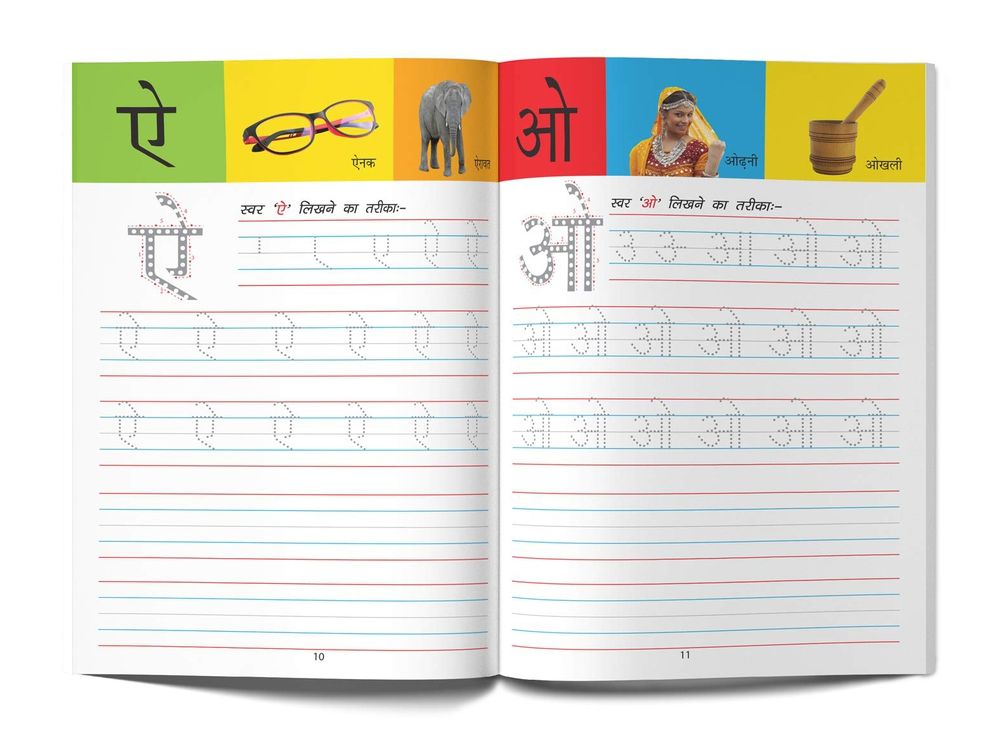 ऐ
ऐनक
ऐरावत
स्वर 'ऐ' लिखने का तरीकाः-
ऐ
ए ऐ ऐ
ऐ ऐ ऐ ऐ ऐ ऐ
ऐ ऐ ऐ ऐ ऐ ऐ
10
ओ
ओढ़नी
ओखली
स्वर 'ओ' लिखने का तरीकाः-
ओ
आ ओ ओ
ओ ओ ओ ओ ओ ओ
ओ ओ ओ ओ ओ ओ
11